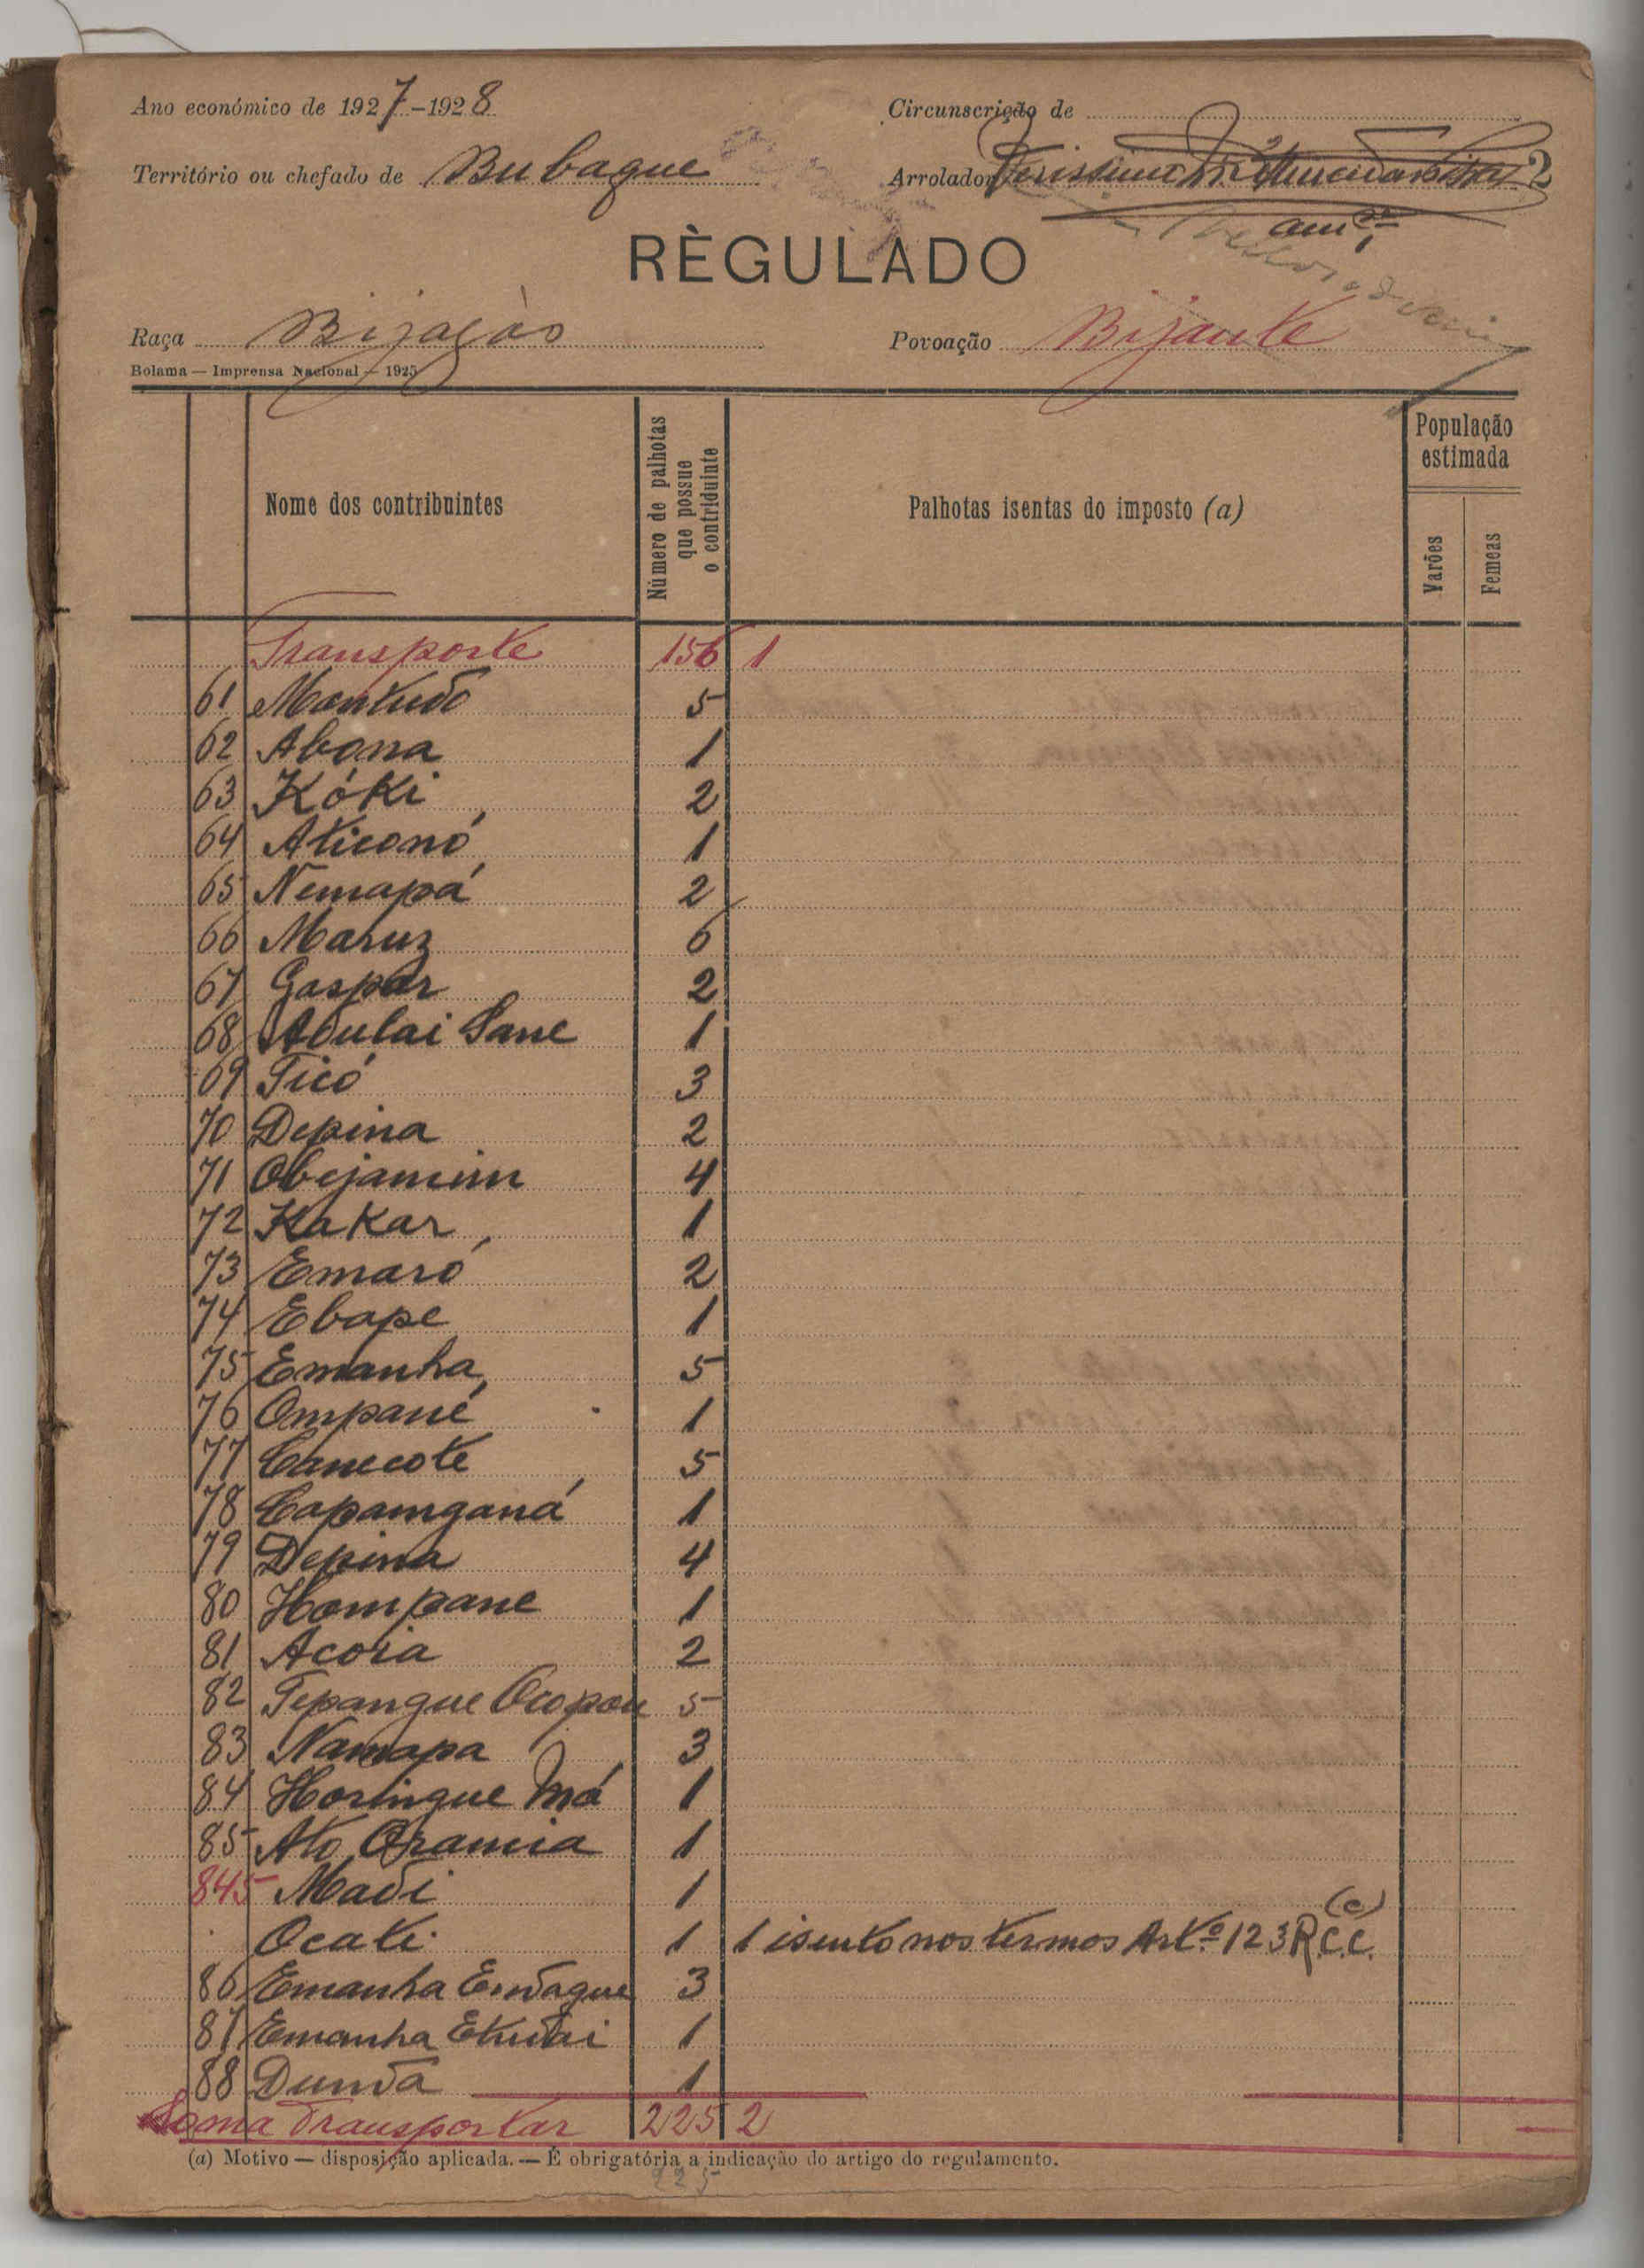 Ano económico de 1927-1928
Circunscrição de
Território ou chefado de Bubaque
Arrolador
2
RÈGULADO
Raça Bijagós
Povoação Bijante
Bolama — Imprensa Nacional — 1925
Nome dos contribuintes
Número de palhotas que possue o contriduinte
Palhotas isentas do imposto (a)
População estimada
Varões
Femeas
Transporte 156 1
61 Mantudo 5
62 Abona 1
63 Kóki 2
64 Aticonó 1
65 Nemapá 2
66 Maruz 6
67 Gaspar 2
68 Abulai Sane 1
69 Ticó 3
70 Depina 2
71 Obejamim 4
72 Kakar 1
73 Emaró 2
74 Ebape 1
75 Emanha 5
76 Ompané 1
77 Canecote 5
78 Capamganá 1
79 Depina 4
80 Hompane 1
81 Acoia 2
82 Tepangue 5
83 Namapa 3
84 Horingue Má 1
85 Ato Oramia 1
845 Madi 1
Ocati 1 1 isento nos termos Artº 123 R.C.C.
(c)
86 Emanha Endague 3
87 Emanha Etudai 1
88 Dunda 1
Soma Transportar 225 2
(a) Motivo — disposição aplicada. — É obrigatória a indicação do artigo do regulamento.
225